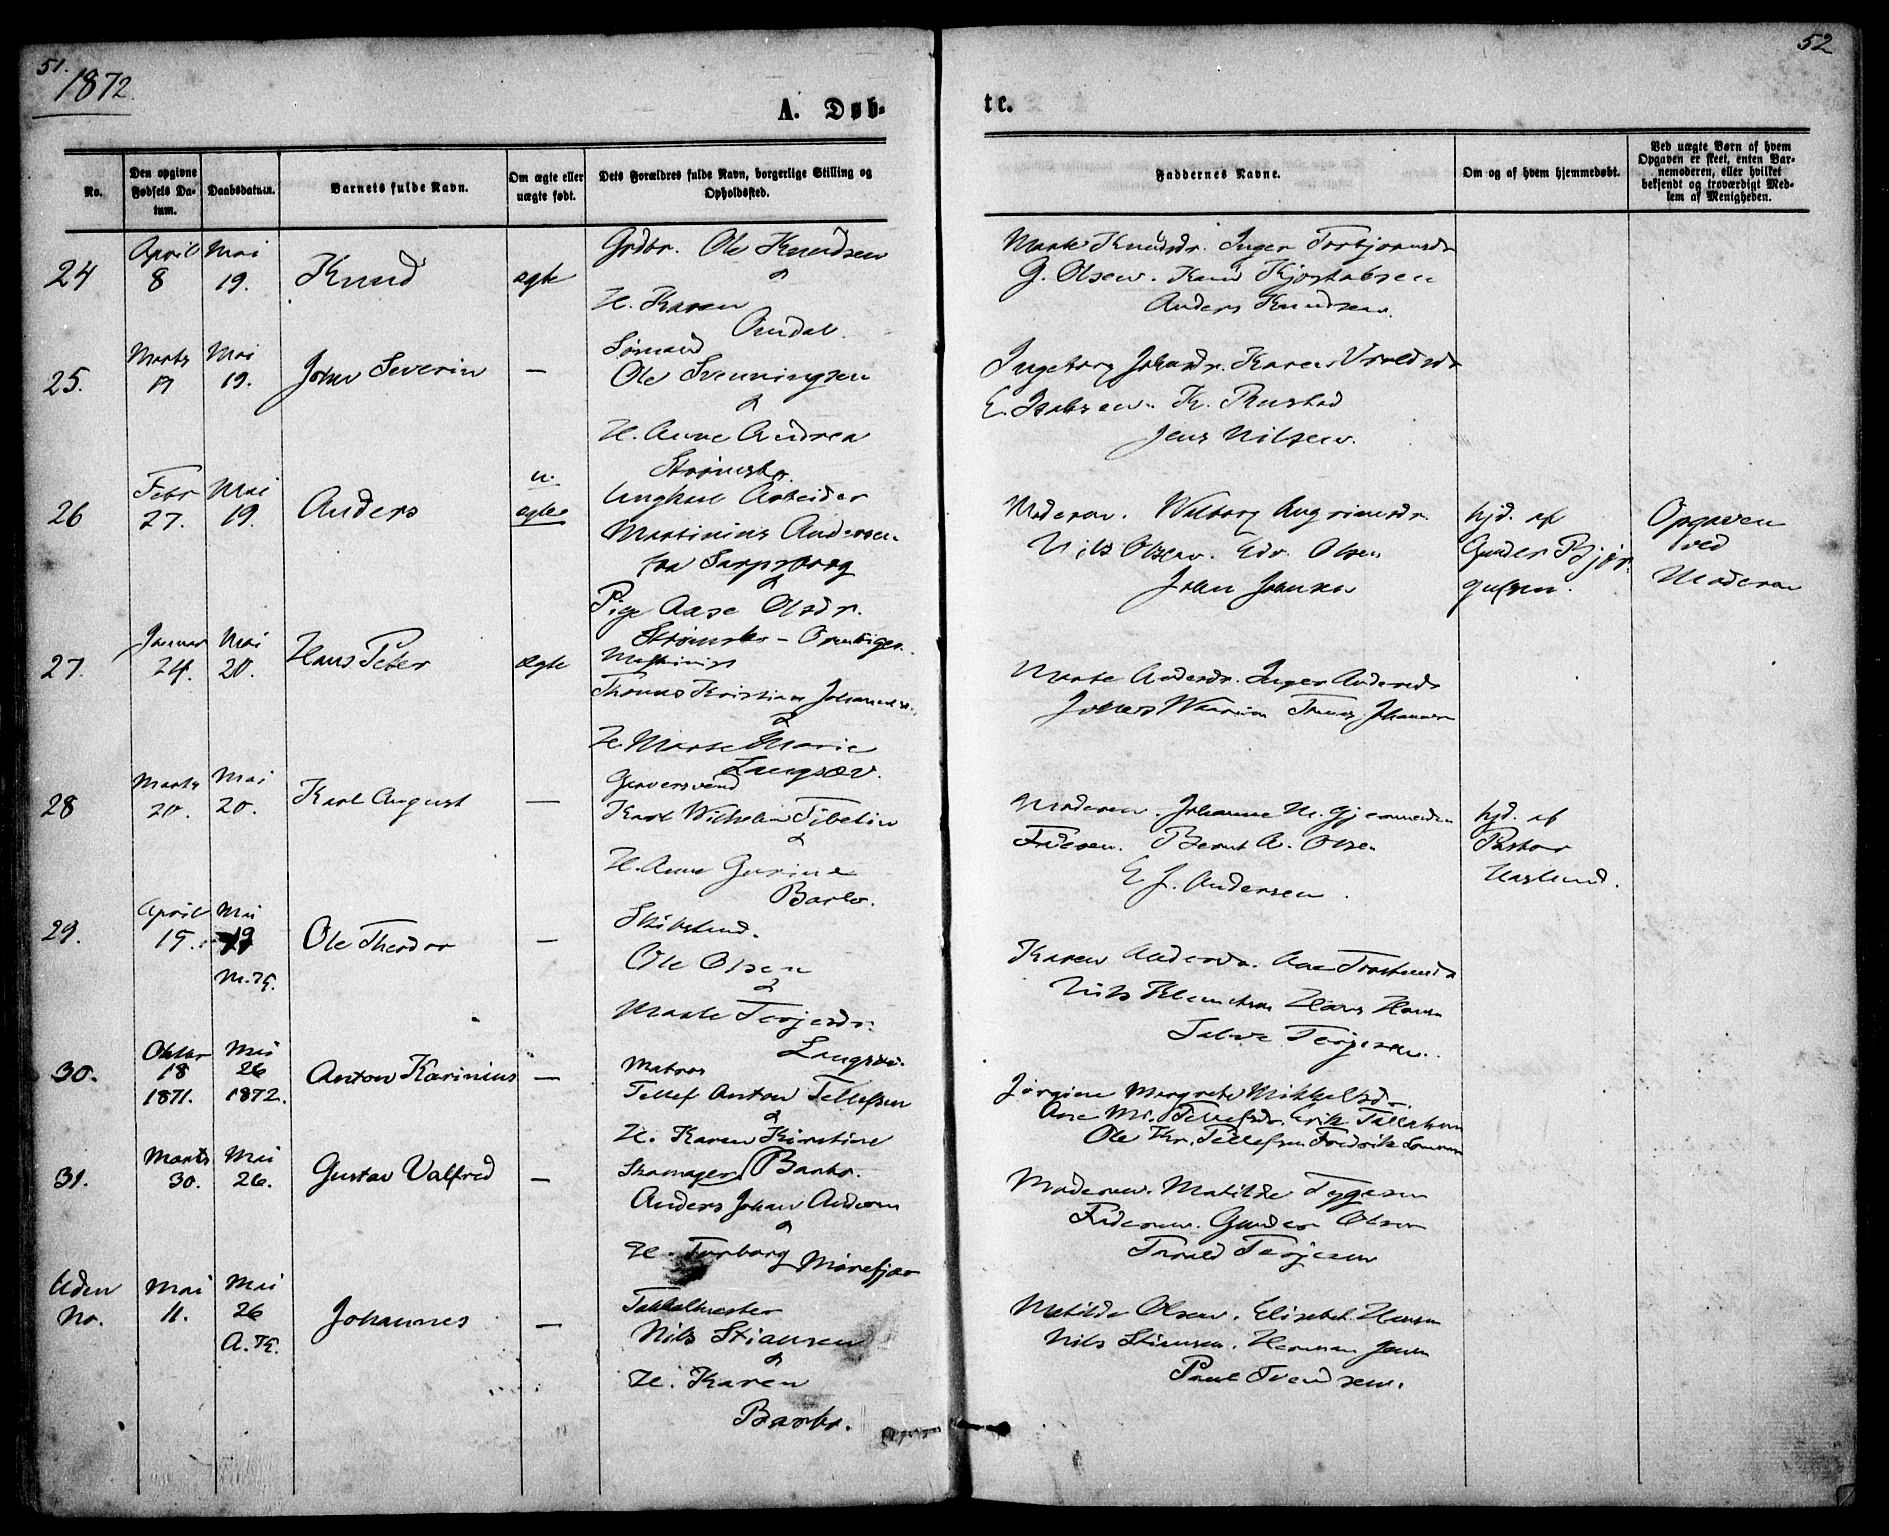 51.
1872
52
A. Døb-
te.
No.
Den opgivne Fødsels Da-
tum.
Daabsdatum.
Barnets fulde Navn.
Om ægte eller
uægte født.
Dets Forældres fulde Navn, borgerlige Stilling og
Opholdssted.
Faddernes Navne.
Om og af hvem hjemmedøbt.
Ved uægte Børn af hvem
Opgaven er skeet, enten Bar-
nemoderen, eller hvilket
bekjendt og troværdigt Med-
lem af Menigheden.
24
April
8
Mai
19.
Knud
ægte
Grdbr. Ole Knudsen
&
H. Karen
Marte Knudsdr. Inger Torbjørnsdr
G. Olsen. Knud
Anders Knudsen.
25.
Marts
Mai
19.
Johan Severin
—
Sømand
Ole Svenningsen
&
H. Anne Andrea
Strømsbo.
Ingeborg Johnsdr. Karen
E. Isaksen. K. Rustad
Jens Nilsen.
26
Febr
27.
Mai
19.
Anders
u.
ægte
Ungkarl Arbeider
Martinius Andersen
fra Sarpsborg
&
Pige Aase Olsdr.
Strømsbo -
Moderen. Valborg
Nils Olsen. Edv. Olsen
John Johnsen
hjd. af
Gunder Bjør
gulsen.
Opgaven
ved
Moderen
27.
Januar
24.
Mai
20.
Hans Peter
ægte
Maskinist
Thomas Kristian Johannesen
&
H. Marte Marie
Langsæv.
Marte Andersdr. Inger Andersdr
28
Marts
20.
Mai
20.
Karl August
—
Garversvend
Karl Wilhelm Tibelin
&
H. Anne Gurine
Barbo.
Moderen. Johanne M.
Faderen. Bernt A. Olsen
E J. Andersen.
hjd. af
Pastor
Haslund.
29.
April
15.
Mai
19
M. K.
Ole Theodor
—
Skibstmd.
Ole Olsen
&
Marte Terjesdr.
Langsæv.
Karen Andersdr. Ane
Nils Klemetsen Hans Hansen
Terjesen.
30.
Oktbr
18
1871.
Mai
26
1872.
Anton Karinius
—
Matros
Tellef Anton Tellefsen
&
H. Karen Kirstine
Barbo.
Jørgine Margrete Mikkelsdr.
Ane M. Tellefsdr. Erik Tellefsen
Ole Kr. Tellefsen Fredrik
31.
Marts
30.
Mai
26.
Gustav Valfred
—
Skomager
Anders Johan Andersen
&
H. Torborg
Mørefjær
Moderen. Matilde Tygesen
Faderen. Gunder Olsen
Terjesen
Uden
No.
Mai
11.
Mai
26
A. K.
Johannes
—
Nils Stiansen
&
H. Karen
Barbo.
Matilde Olsen. Elisabet Hansen
Nils Stiansen. Herman Jensen
Svendsen.